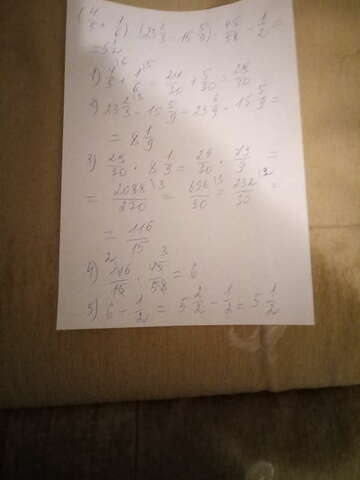 (4/5 + 1/6) · (23 2/3 - 15 5/9) · 45/58 - 1/2 =
= 5 1/2
1) 4/5 + 1/6 = 24/30 + 5/30 = 29/30
2) 23 2/3 - 15 5/9 = 23 6/9 - 15 5/9 =
= 8 1/9
3) 29/30 · 8 1/9 = 29/30 · 73/9 =
= 2088/270 = 696/90 = 232/30 =
= 116/15
4) 116/15 · 45/58 = 6
5) 6 - 1/2 = 5 2/2 - 1/2 = 5 1/2